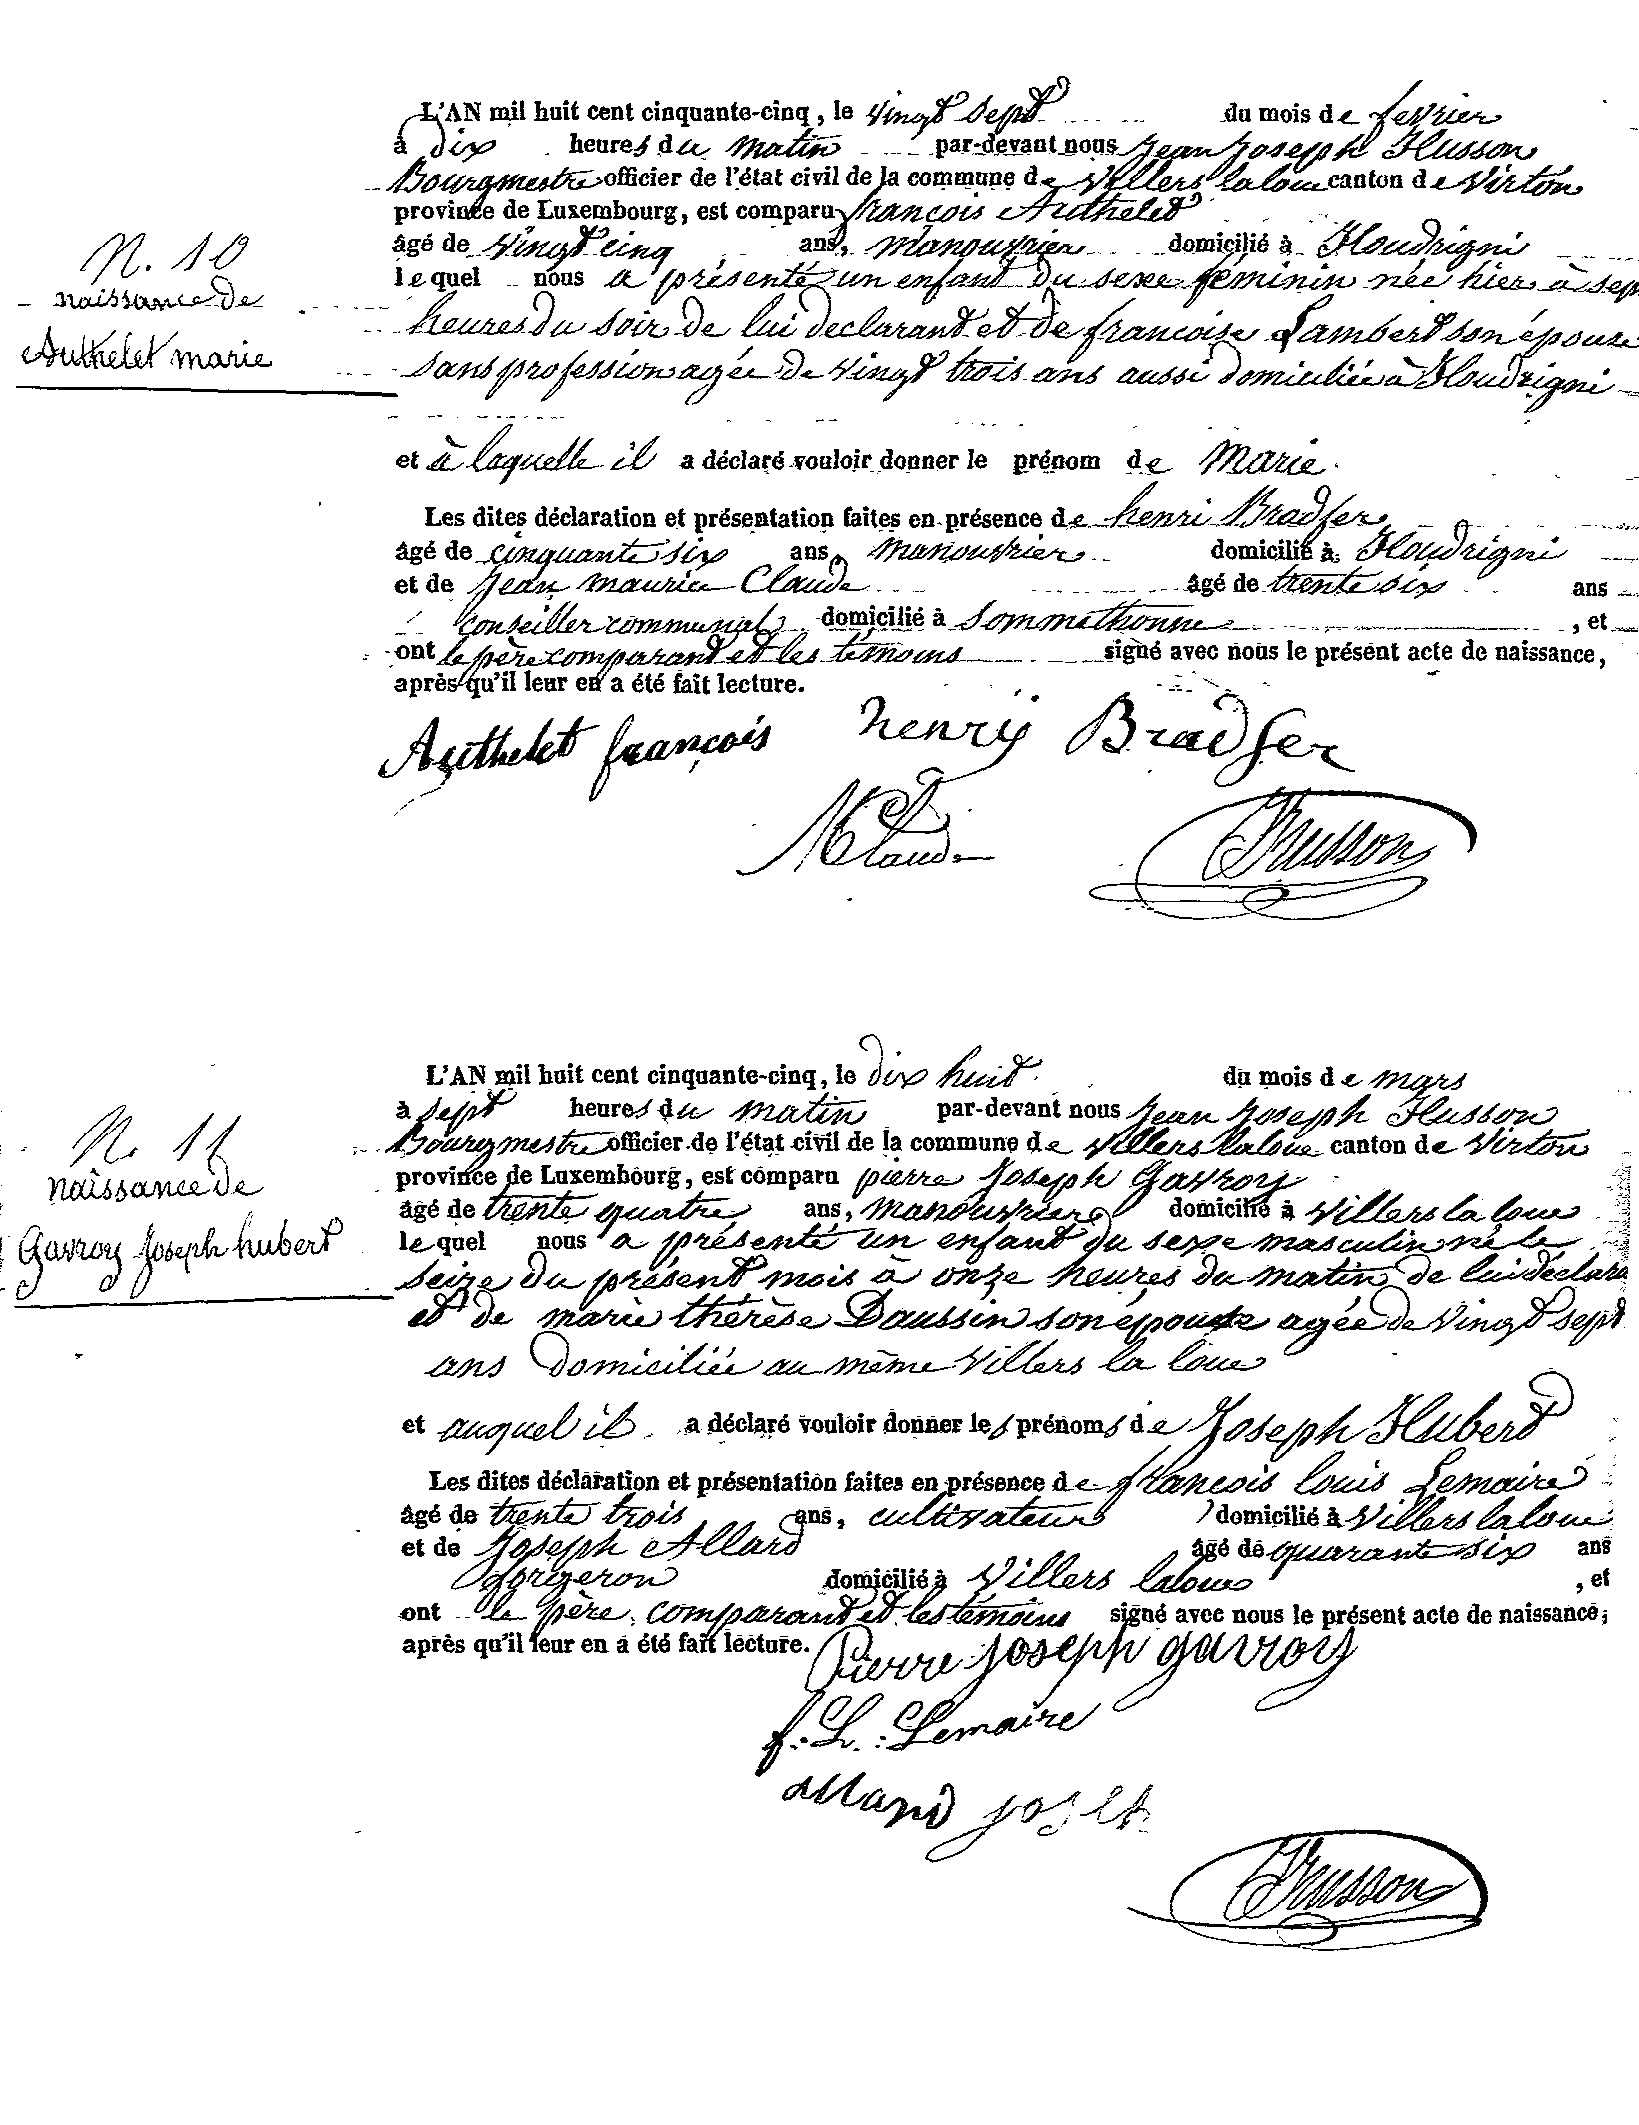 L'AN mil huit cent cinquante-cinq, le vingt sept du mois de fevrier
à dix heures du matin par-devant nous Jean Joseph Husson
Bourgmestre officier de l'état civil de la commune de Villers la loue canton de Virton
province de Luxembourg, est comparu françois Authelet
âgé de vingt cinq ans, manouvrier domicilié à Houdrigni
N. 10
naissance de
Authelet marie
lequel nous a présenté un enfant du sexe féminin née hier à sept
heures du soir de lui declarant et de francoise Lambert son épouse
sans profession agée de vingt trois ans aussi domiciliée à Houdrigni
et à laquelle il a déclaré vouloir donner le prénom de Marie.
Les dites déclaration et présentation faites en présence de henri Bradfer
âgé de cinquante six ans, manouvrier domicilié à Houdrigni
et de Jean maurice Claude âgé de trente six ans
conseiller communal domicilié à Sommethonne , et
ont le père comparant et les témoins signé avec nous le présent acte de naissance,
après qu'il leur en a été fait lecture.
Authelet françois henry Bradfer
Claude Husson
L'AN mil huit cent cinquante-cinq, le dix huit du mois de mars
à sept heures du matin par-devant nous Jean Joseph Husson
Bourgmestre officier de l'état civil de la commune de Villers la loue canton de Virton
province de Luxembourg, est comparu pierre Joseph Gavroy
âgé de trente quatre ans, manouvrier domicilié à Villers la loue
N. 11
naissance de
Gavroy Joseph hubert
lequel nous a présenté un enfant du sexe masculin né le
seize du présent mois à onze heures du matin de lui déclara
et de marie thérèse Daussin son épouse agée de vingt sept
ans domiciliée au même Villers la loue
et auquel il a déclaré vouloir donner les prénoms de Joseph Hubert
Les dites déclaration et présentation faites en présence de françois louis Lemaire
âgé de trente trois ans, cultivateur domicilié à Villers la loue
et de Joseph Allard âgé de quarante six ans
forgeron domicilié à Villers la loue , et
ont le père comparant et les témoins signé avec nous le présent acte de naissance,
après qu'il leur en a été fait lecture.
Pierre Joseph gavroy
f. L. Lemaire
allard
Husson